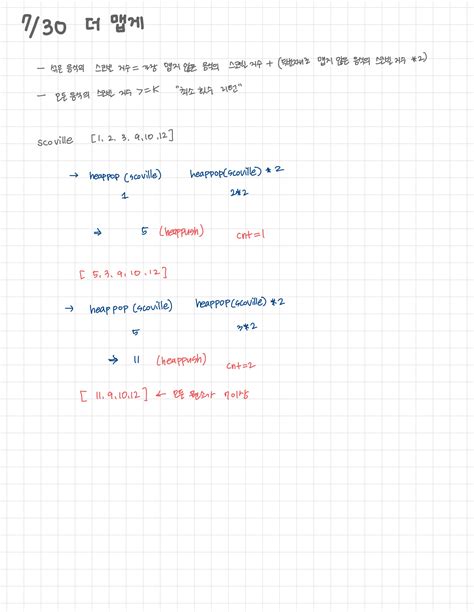 7/30 더 맵게
- 섞은 음식의 스코빌 지수 = 가장 맵지 않은 음식의 스코빌 지수 + (두번째로 맵지 않은 음식의 스코빌 지수 *2)
- 모든 음식의 스코빌 지수 >= K "최소 횟수 리턴"
scoville [1, 2, 3, 9, 10, 12]
→ heappop (scoville) heappop(scoville) * 2
1 2*2
→ 5 (heappush) cnt=1
[ 5, 3, 9, 10, 12]
→ heappop (scoville) heappop(scoville) *2
5 3*2
→ 11 (heappush) cnt=2
[ 11, 9, 10, 12 ] ← 모든 원소가 7이상